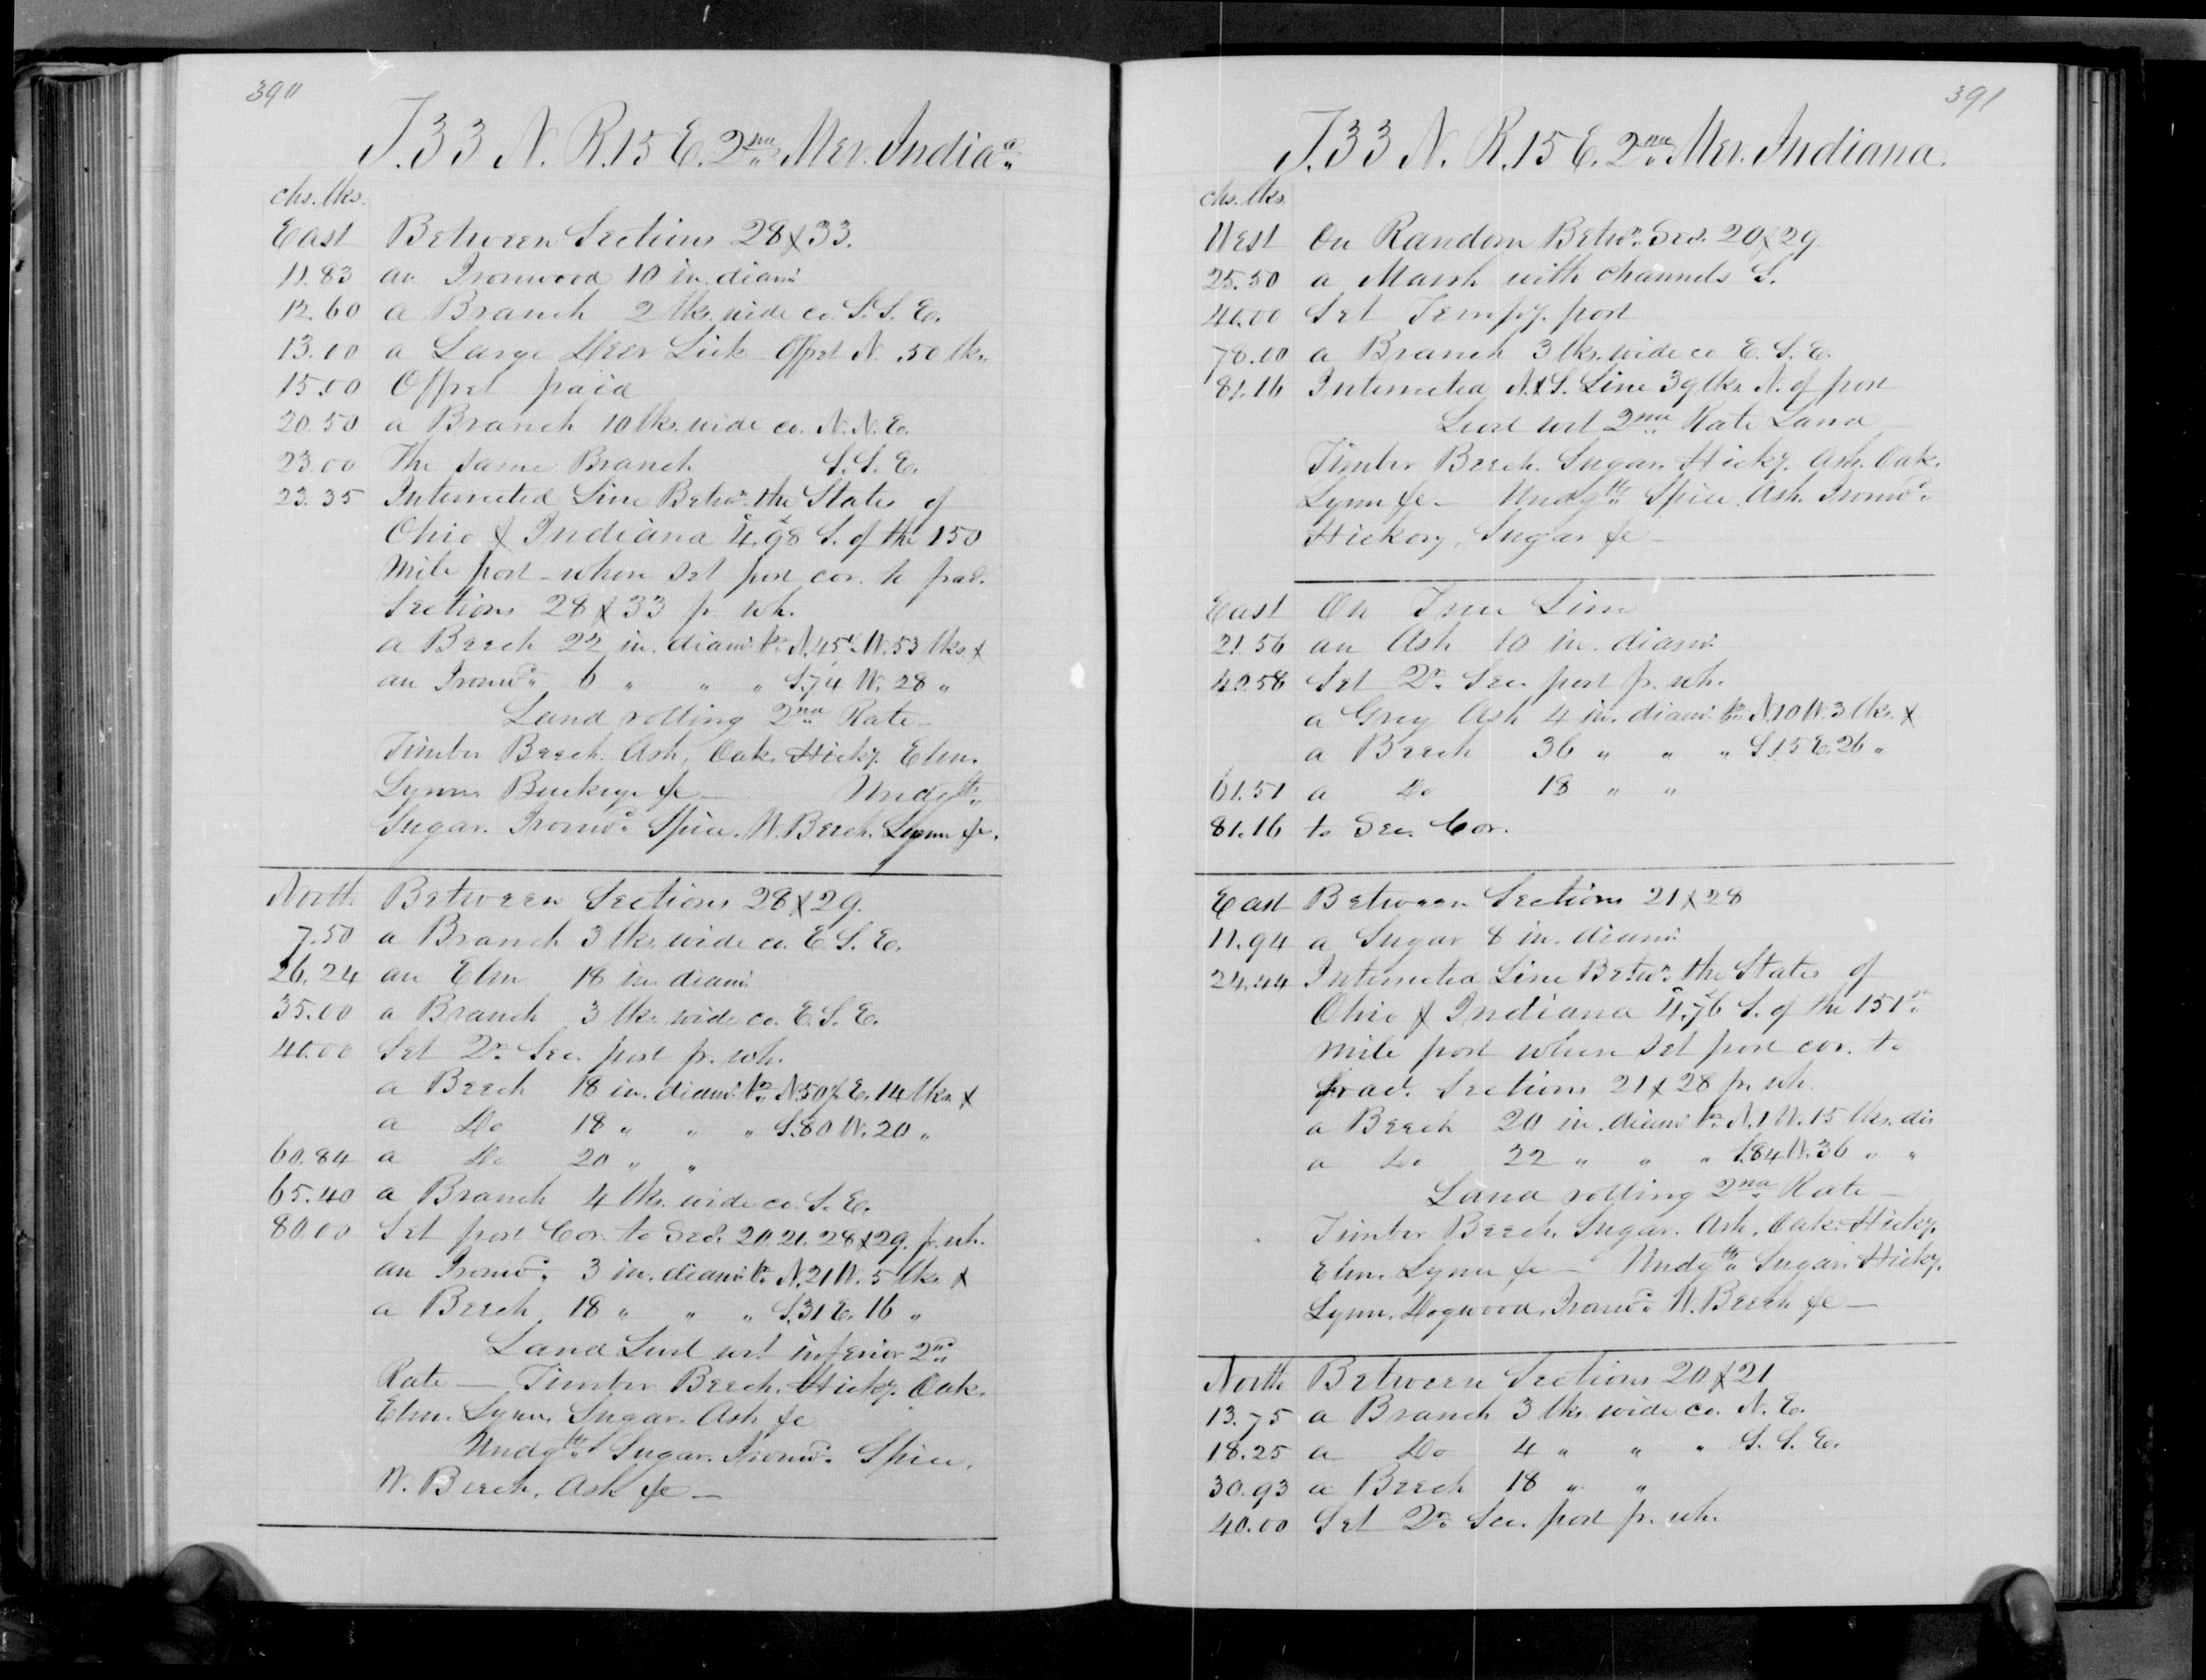 390
T. 33 N. R. 15 E. 2nd Mer. Indiaa
chs. lks.
East Between Sections 28 & 33.
11.83 an Ironwood 10 in. diam.
12.60 a Branch 2 lks. wide co. S. S. E.
13.00 a Large Deer Lick Offset N. .50 lks.
15.00 Offset paid
20.50 a Branch 10 lks. wide co. N. N. E.
23.00 The same Branch S. S. E.
23.35 Intersected Line Betwn. the States of
Ohio & Indiana 4.98 S. of the 150
Mile post - where set post cor. to frac.
Sections 28 & 33 fr. wh.
a Beech 22 in. diam. brs. N. 45 W. 53 lks. &
an Ironwd. 6 " " " S. 74 W. 28 "
Land rolling 2nd Rate -
Timber Beech. Ash, Oak. Hicky. Elm.
Lynn. Buckeye &c - Undgth.
Sugar. Ironwd. Spice. W. Beech. Lynn &c.
North Between Sections 28 & 29.
7.50 a Branch 3 lks. wide co. E. S. E.
26.24 an Elm 18 in. diam.
35.00 a Branch 3 lks. wide co. E. S. E.
40.00 Set Qr. Sec. post fr. wh.
a Beech 18 in. diam. brs. N. 50 E. 14 lks. &
a Do 18 " " " S. 80 W. 20 "
60.84 a Do 20 " "
65.40 a Branch 4 lks. wide co. S. E.
80.00 Set post Cor. to Secs. 20. 21. 28 & 29. fr. wh.
an Ironwd. 3 in. diam. brs. N. 21 W. 5 lks. &
a Beech 18 " " " S. 31 E. 16 "
Land Level wet inferior 2nd
Rate — Timber Beech. Hicky. Oak.
Elm. Lynn. Sugar. Ash &c
Undgth. Sugar. Ironwd. Spice.
W. Beech. Ash &c —
391
T. 33 N. R. 15 E. 2nd Mer. Indiana.
chs. lks.
West On Random Betwn. Secs. 20 & 29
25.50 a Marsh with channels S.
40.00 Set Tempy. post
78.00 a Branch 3 lks. wide co E. S. E.
81.16 Intersected N. & S. Line 39 lks. N. of post
Level wet 2nd Rate Land
Timber Beech. Sugar. Hicky. Ash. Oak.
Lynn &c - Undgth. Spice. Ash. Ironwd.
Hickory, Sugar &c -
East On True Line
21.56 an Ash 10 in. diam.
40.58 Set Qr. Sec. post fr. wh.
a Grey Ash 4 in. diam. brs. N. 10 W. 3 lks. &
a Beech 36 " " " S. 15 E. 26 "
61.51 a Do 18 " "
81.16 to Sec. Cor.
East Between Sections 21 & 28
11.94 a Sugar 8 in. diam.
24.44 Intersected Line Betwn. the States of
Ohio & Indiana 4.76 S. of the 151st
Mile post where set post cor. to
frac. Sections 21 & 28 fr. wh.
a Beech 20 in. diam. brs. N. 1 W. 15 lks. dis
a Do 22 " " " S. 84 W. 36 " "
Land rolling 2nd Rate -
Timber Beech. Sugar. Ash. Oak. Hicky.
Elm. Lynn &c - Undgth. Sugar. Hicky.
Lynn. Dogwood. Ironwd. W. Beech &c —
North Between Sections 20 & 21
13.75 a Branch 3 lks. wide co. N. E.
18.25 a Do 4 " " " S. S. E.
30.93 a Beech 18 " "
40.00 Set Qr. Sec. post fr. wh.